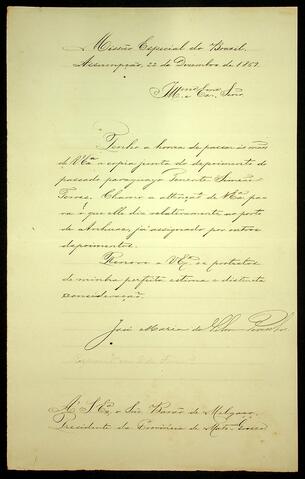 Missão Especial do Brasil.
Assumpção, 22 de Dezembro de 1869.
Illmo e Exmo Snr.
Tenho a honra de passar ás mãos
de V Exa a copia junta do depoimento do
passado paraguayo
Torres. Chamo a attenção de V Exa pa-
ra o que elle diz relativamente ao porto
de já assignado por outros
depoimentos.
Renovo a V Exa os protestos
de minha perfeita estima e distincta
consideração.
José Maria da Silva Paranhos
A S. Exa o Snr. Barão de Melgaço,
Presidente da Provincia de Mato Grosso